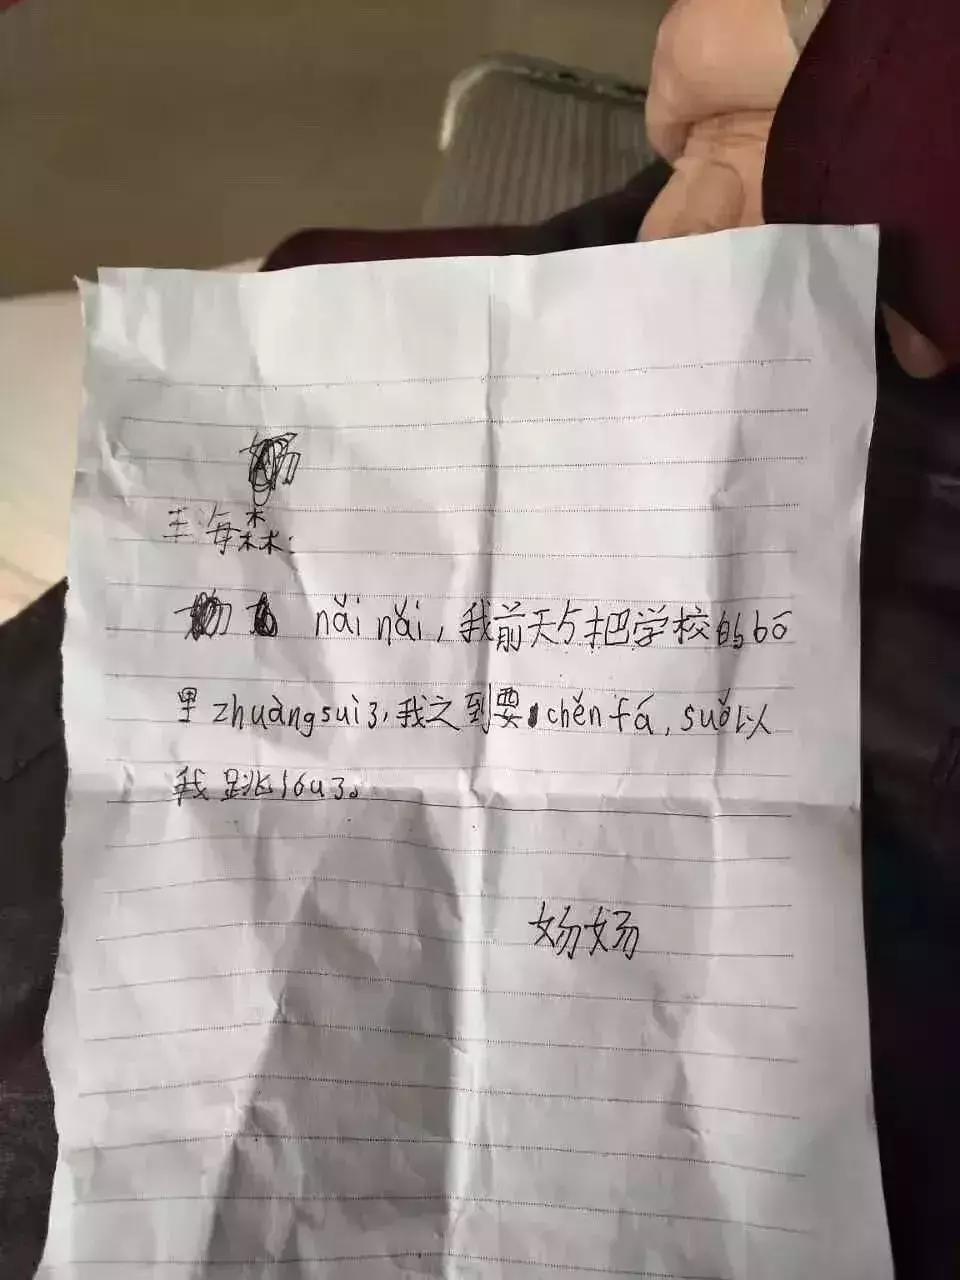 王海森:
nǎi nǎi,我前天与把学校的bō
里zhuàngsuì了,我之到要chěnfá,suǒ以
我跳lóu了。
妫妫